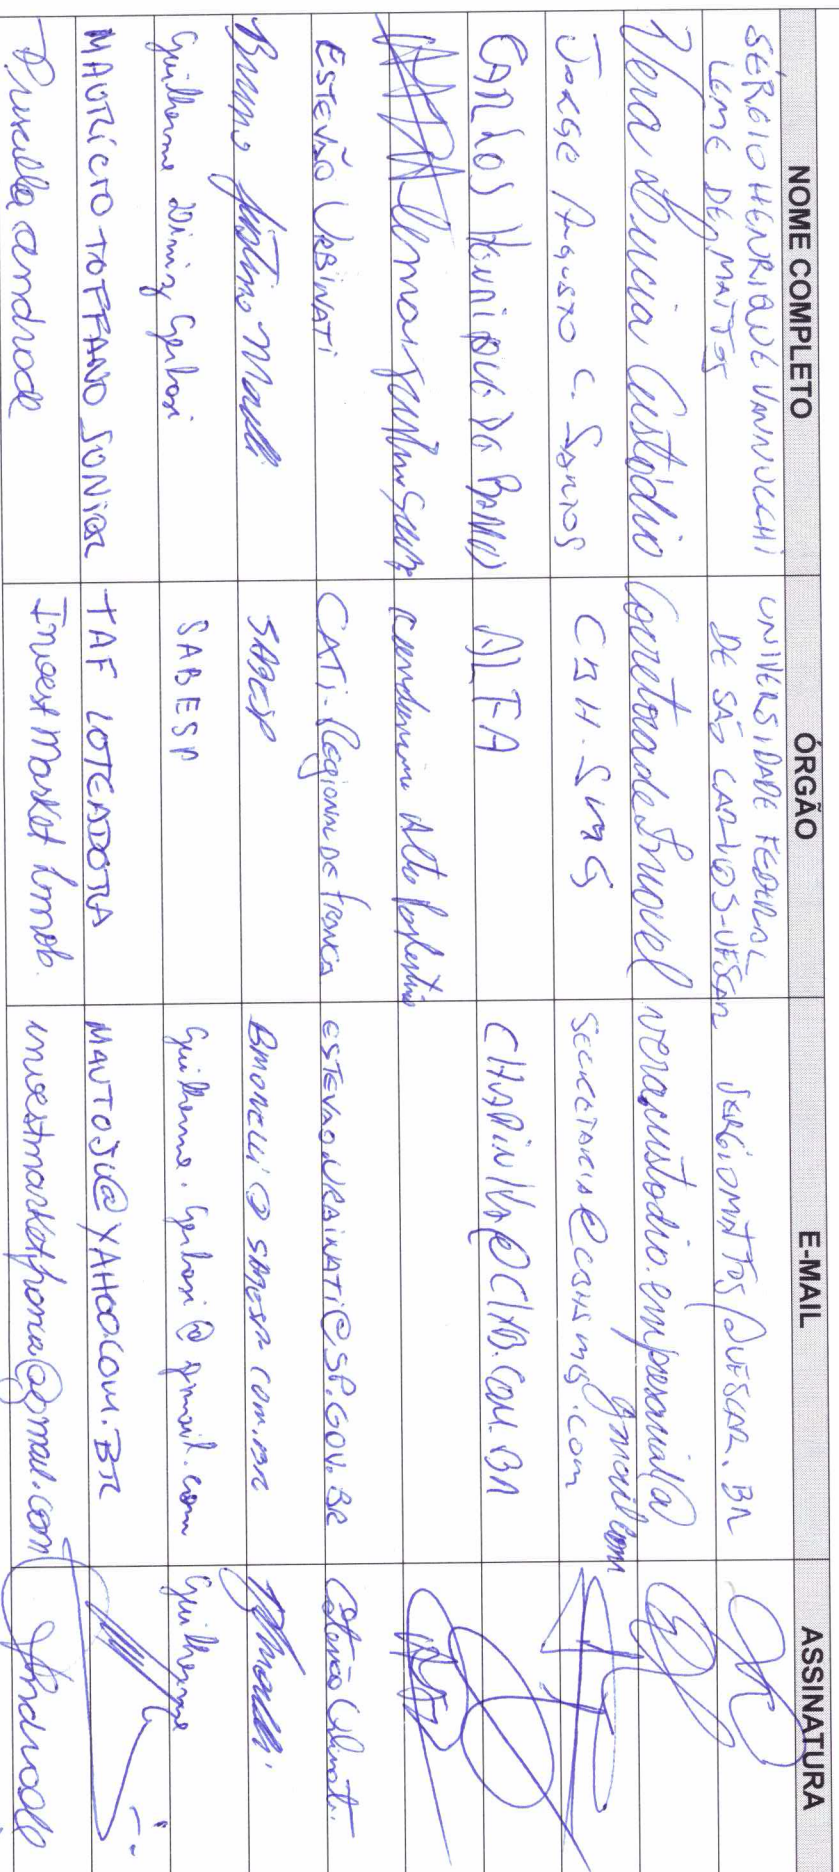 NOME COMPLETO ÓRGÃO E-MAIL ASSINATURA
SÉRGIO HENRIQUE VANNUCCHI
LEME DE MATTOS
UNIVERSIDADE FEDERAL
DE SÃO CARLOS-UFSCAR
SERGIOMATTOS@UFSCAR.BR
Vera Lucia Custódio Corretora de Imovel veracustodio.empresarial@
gmail.com
JORGE AUGUSTO C. SANTOS CBH-SMG SECRETARIA@CBHSMG.COM
CARLOS HENRIQUE DA ALFA @CIAB.COM.BR
condominio Alto
ESTEVÃO URBINATI CATI-Regional de Franca ESTEVAO.URBINATI@SP.GOV.BR Estevão Urbinati
Bruno SABESP
Guilherme SABESP Guilherme
MAURÍCIO TOFFANO JUNIOR TAF LOTEADORA MAUTOJU@YAHOO.COM.BR
Priscilla Andrade Invest Market Imob. Andrade